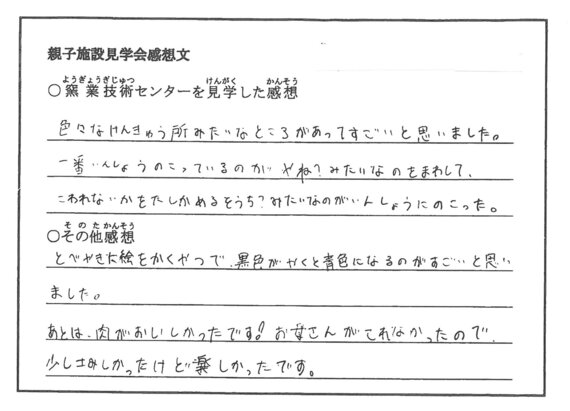 親子施設見学会感想文
ようぎょうぎじゅつ けんがく かんそう
○窯業技術センターを見学した感想
色々なけんきゅう所みたいなところがあってすごいと思いました。
一番いんしょうのこっているのが、やね?みたいなのをまわして、
こわれないかをたしかめるそうち?みたいなのがいんしょうにのこった。
そのたかんそう
○その他感想
とべやきに絵をかくやつで、黒色がやくと青色になるのがすごいと思い
ました。
あとは、肉がおいしかったです!お母さんがこれなかったので、
少しさみしかったけど楽しかったです。